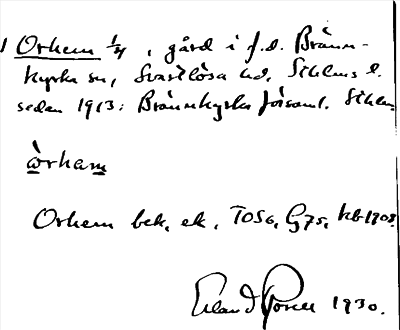 1 Orhem 1/4, gård i f.d. Bränn-
kyrka sn, Svartlösa hd, Sthlms l.
sedan 1913: Brännkyrka församl. Sthlm
òrham
Orhem bek, ek, TOSG, G75, kb 1908
Erland Rosell 1930.